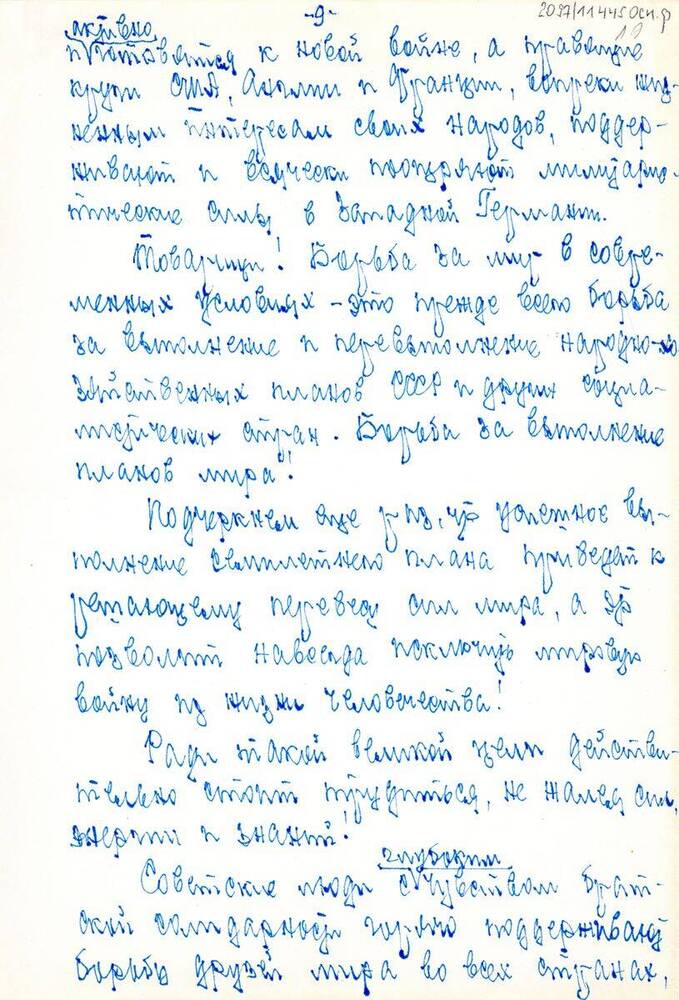 -9-
2097/11445 Осн.ф
10
активно
готовятся к новой войне, а правящие
круги США, Англии и Франции, вопреки жиз-
ненным интересам своих народов, поддер-
живают и всячески поощряют милитарис-
тические силы в Западной Германии.
Товарищи! Борьба за мир в совре-
менных условиях - это прежде всего борьба
за выполнение и перевыполнение народно-хо-
зяйственных планов СССР и других социа-
листических стран. Борьба за выполнение
планов мира!
Подчеркнем еще раз, что успешное вы-
полнение семилетнего плана приведет к
решающему перевесу сил мира, а это
позволит навсегда исключить мировую
войну из жизни человечества!
Ради такой великой цели действи-
тельно стоит трудиться, не жалея сил,
энергии и знаний!
глубоким
Советские люди с чувством брат-
ской солидарности горячо поддерживают
борьбу друзей мира во всех странах,